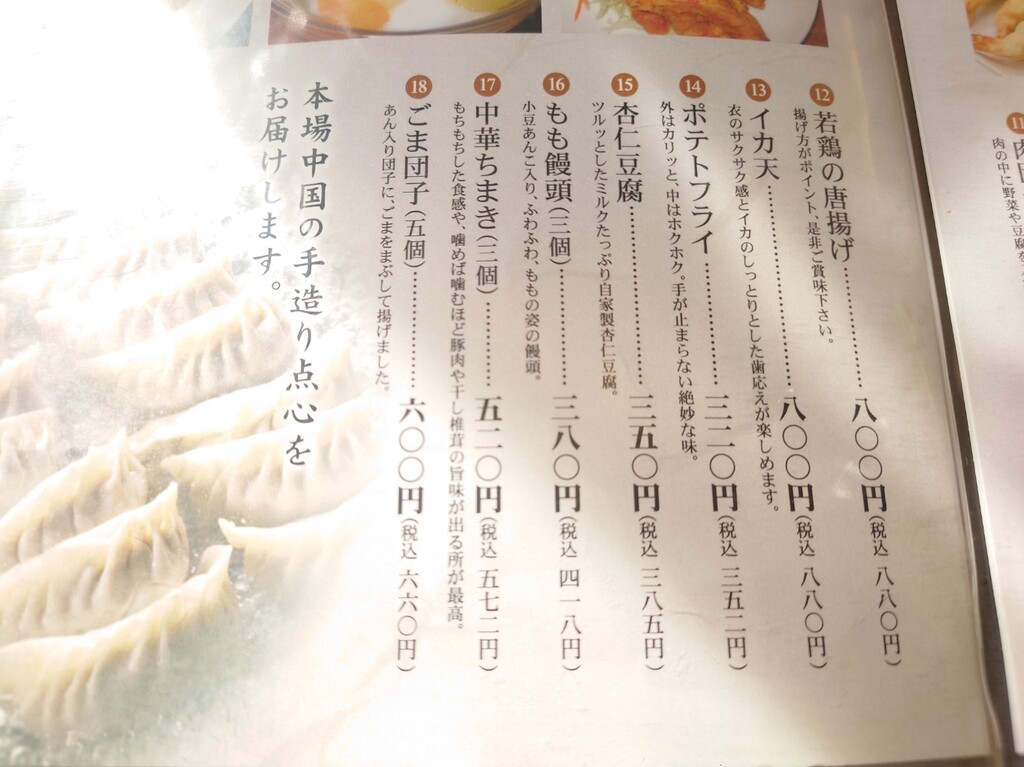 ⑪肉団
肉の中に野菜や豆腐を
⑫若鶏の唐揚げ…………八〇〇円(税込 八八〇円)
揚げ方がポイント、是非ご賞味下さい。
⑬イカ天…………八〇〇円(税込 八八〇円)
衣のサクサク感とイカのしっとりとした歯応えが楽しめます。
⑭ポテトフライ…………三二〇円(税込 三五二円)
外はカリッと、中はホクホク。手が止まらない絶妙な味。
⑮杏仁豆腐…………三五〇円(税込 三八五円)
ツルッとしたミルクたっぷり自家製杏仁豆腐。
⑯もも饅頭(三個)…………三八〇円(税込 四一八円)
小豆あんこ入り、ふわふわ、ももの姿の饅頭。
⑰中華ちまき(三個)…………五二〇円(税込 五七二円)
もちもちした食感や、噛めば噛むほど豚肉や干し椎茸の旨味が出る所が最高。
⑱ごま団子(五個)…………六〇〇円(税込 六六〇円)
あん入り団子に、ごまをまぶして揚げました。
本場中国の手造り点心を
お届けします。